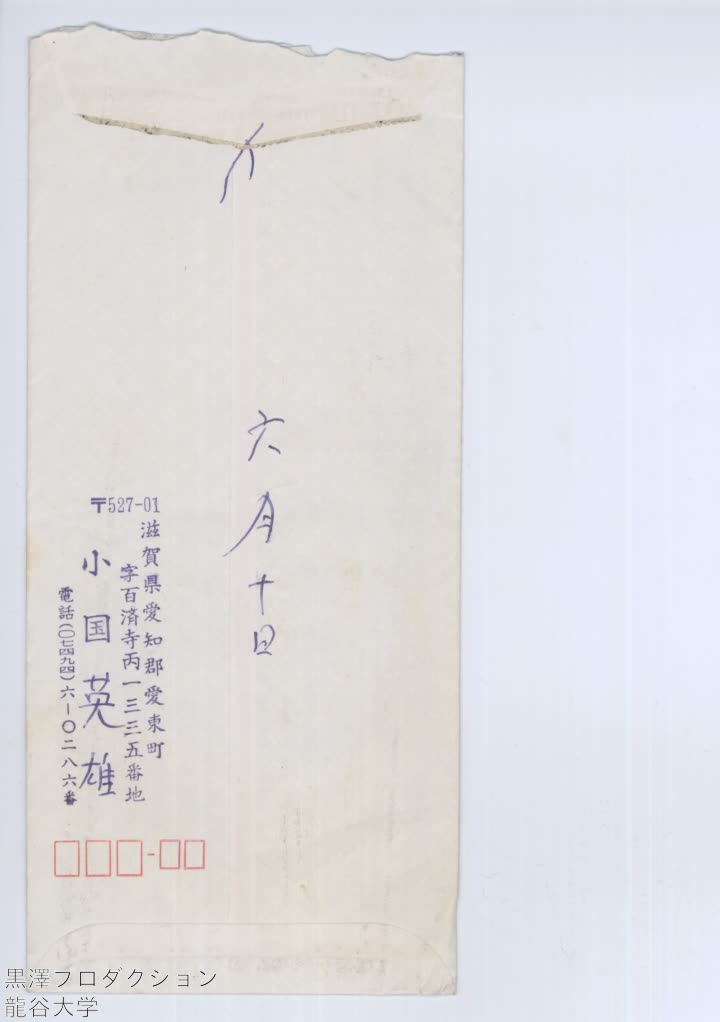 六月十日
〒527-01
滋賀県愛知郡愛東町
字百済寺丙一三三五番地
小国英雄
電話(〇七四九四)六―〇二八六番
黒澤プロダクション
龍谷大学